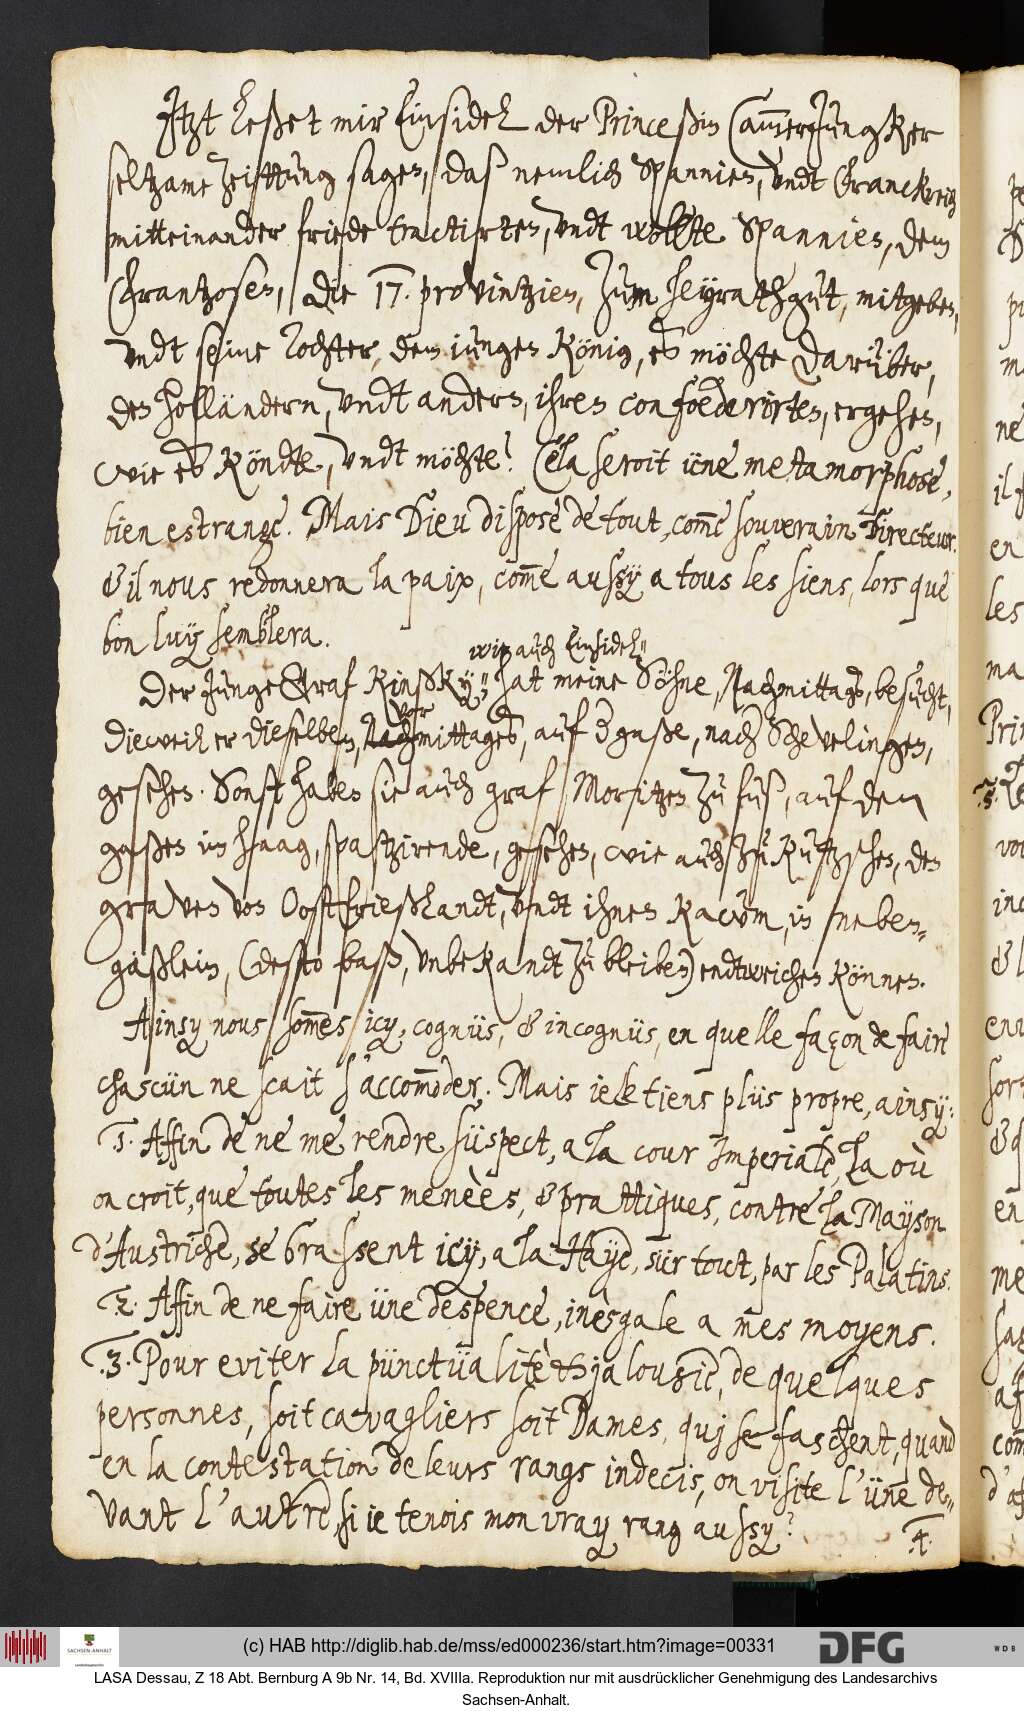 Jtzt leßet mir Einsidel der Princeßin Cam̅erJungker
seltzame zeittung sagen, daß nemlich Spannien, undt Franckreich
mitteinander friede tractirten, undt wollte Spannien, dem
Frantzosen, die 17. provintzien, zum heyrathgut, mitgeben,
undt seine Tochter, dem iungen König, es möchte darüber,
den Holländern, undt andern, ihren confoederirten, ergehen,
wie es köndte, undt möchte? Cela seroit üne metamorphose,
bien estrange. Mais Dieu dispose de tout, com̅e souverain Directeur.
& il nous redonnera la paix, com̅e aussy a tous les siens, lors que
bon luy semblera.
wie auch Einsidel
Der iunge Graf Kinßky, hat meine Söhne, Nachmittags, besucht,
vor
dieweil er dieselben, Nachmittages, auf 3 gaße, nach Schevelingen,
gesehen. Sonst haben sie auch graf Moritzen zu fuß, auf den
gaßen im Haag, spatzirende, gesehen, wie auch zu Kutzschen, den
graven von Oostfrießlandt, undt ihnen kaum, in neben-
gäßlein, (desto baß, unbekandt zu bleiben) endtweichen können.
Ainsy nous som̅es icy, cognüs, & incognüs, en quelle façon de faire
chascün ne scait s'accom̅oder. Mais ie le tiens plüs propre, ainsy:
1. Affin de ne me rendre süspect, a la cour Imperiale, la où
on croit, que toutes les menèes, & prattiques, contre la Mayson
d'Austriche, se brassent icy, a la Haye, sür tout, par les Palatins.
2. Affin de ne faire üne despence, inesgale a mes moyens.
3. Pour eviter la pünctüalitè & jalousie, de quelques
personnes, soit cavagliers soit Dames, quj se faschent, quand
en la contestation de leurs rangs indecis, on visite l'üne de-
vant l'autre, si ie tenois mon vray rang aussy?
4.
(c) HAB http://diglib.hab.de/mss/ed000236/start.htm?image=00331
SACHSEN-ANHALT
DFG
WDB
LASA Dessau, Z 18 Abt. Bernburg A 9b Nr. 14, Bd. XVIIIa. Reproduktion nur mit ausdrücklicher Genehmigung des Landesarchivs
Sachsen-Anhalt.